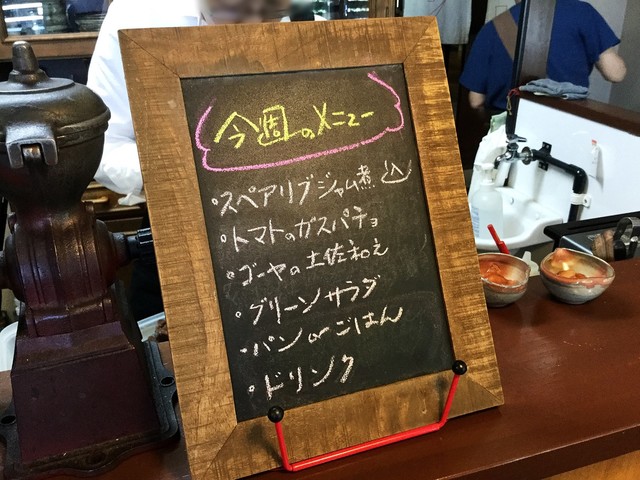 今週のメニュー
・スペアリブジャム煮込
・トマトのガスパチョ
・ゴーヤの土佐和え
・グリーンサラダ
・パン or ごはん
・ドリンク